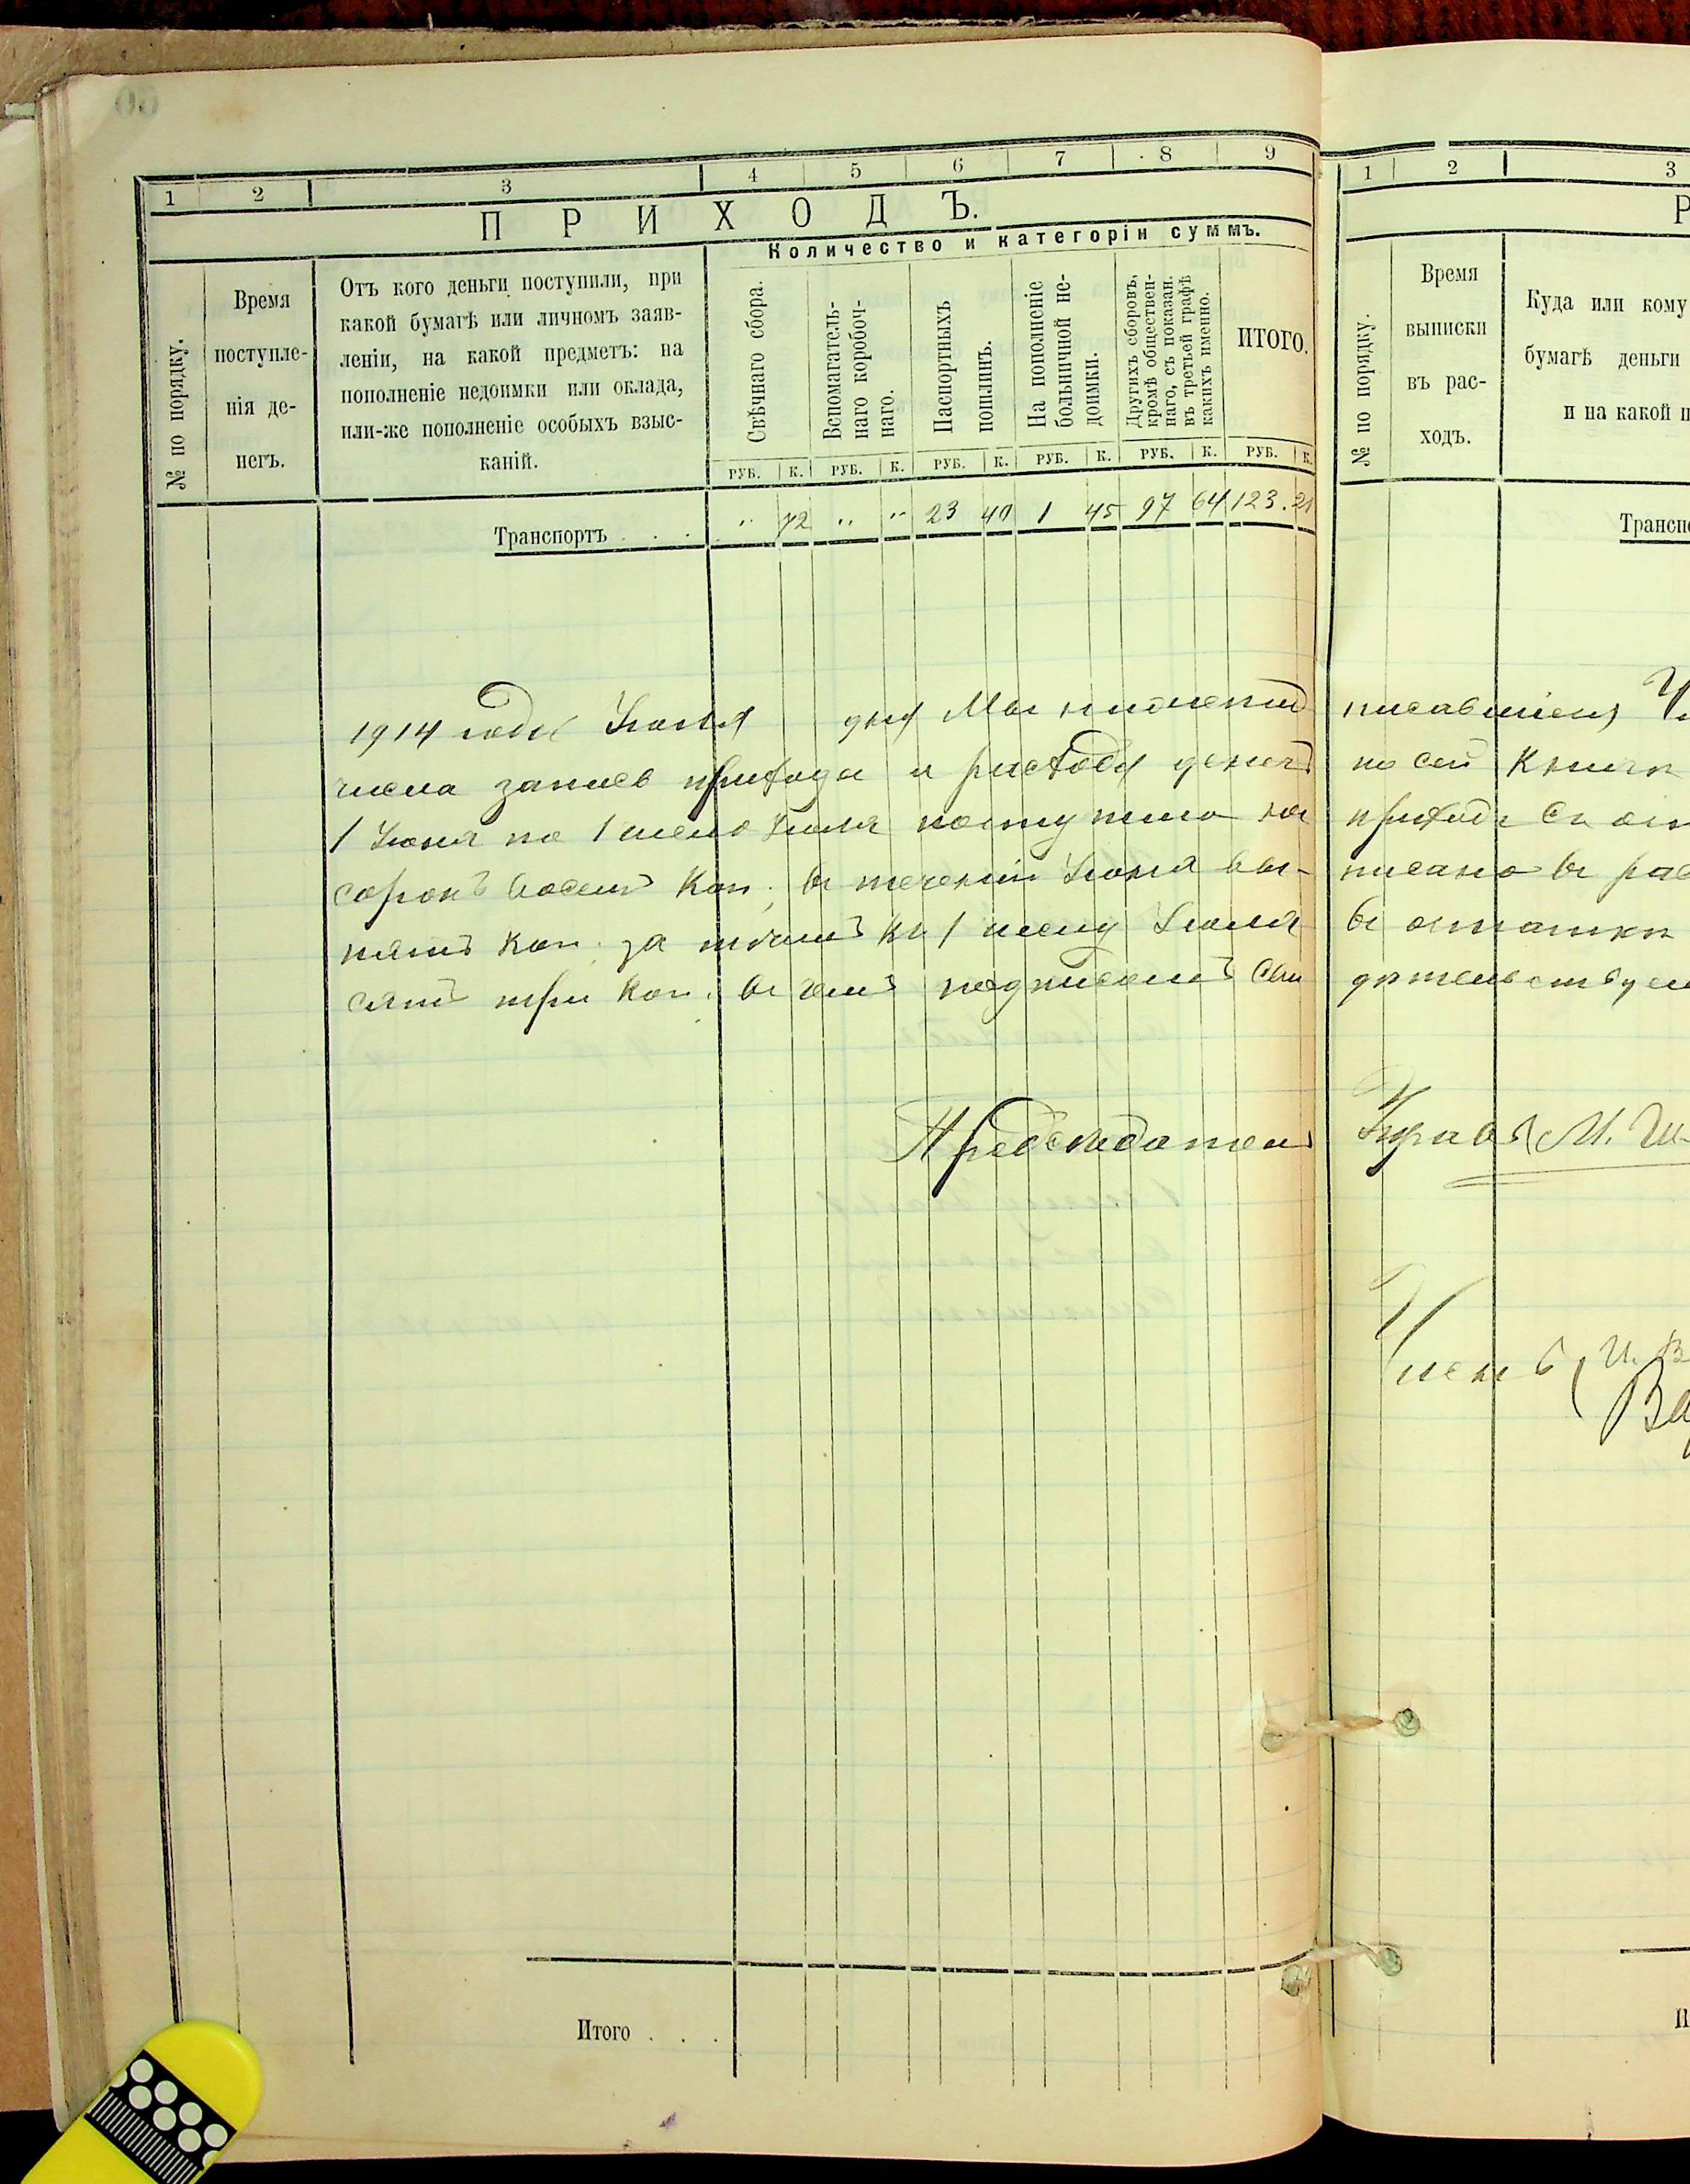 1 2 3 4 5 6 7 8 9
ПРИХОДЪ.
Количество и категоріи суммъ.
№ по порядку.
Время
поступле-
нія де-
негъ.
Отъ кого деньги поступили, при
какой бумагѣ или личномъ заяв-
леніи, на какой предметъ: на
пополненіе недоимки или оклада,
или-же пополненіе особыхъ взыс-
каній.
Свѣчнаго сбора.
Вспомагатель-
наго коробоч-
наго.
Паспортныхъ
пошлинъ.
На пополненіе
больничной не-
доимки.
Другихъ сборовъ,
кромѣ обществен-
наго, съ показан.
въ третьей графѣ
какихъ именно.
ИТОГО.
РУБ. К. РУБ. К. РУБ. К. РУБ. К. РУБ. К. РУБ. К.
Транспортъ . . . " 72 " " 23 40 1 45 97 64 123. 21
1914 года Іюля дня Мы нижепод
числа записъ прихода и расхода денегъ
1 Іюня по 1 число Іюля поступило на
сорокъ восемь коп; въ теченіи Іюня вы-
пять коп. за тѣмъ къ 1 числу Іюля
сятъ три коп. въ чемъ подписомъ сви
Предсѣдатель
Итого . . .
1 2 3
Р
№ по порядку.
Время
выписки
въ рас-
ходъ.
Куда или кому
бумагѣ деньги
и на какой п
Трансп
писавшіеся
по сей книги
приходѣ съ ос
писано въ рас
въ остатки
дѣтельствуем
Управы М.
Членъ
И